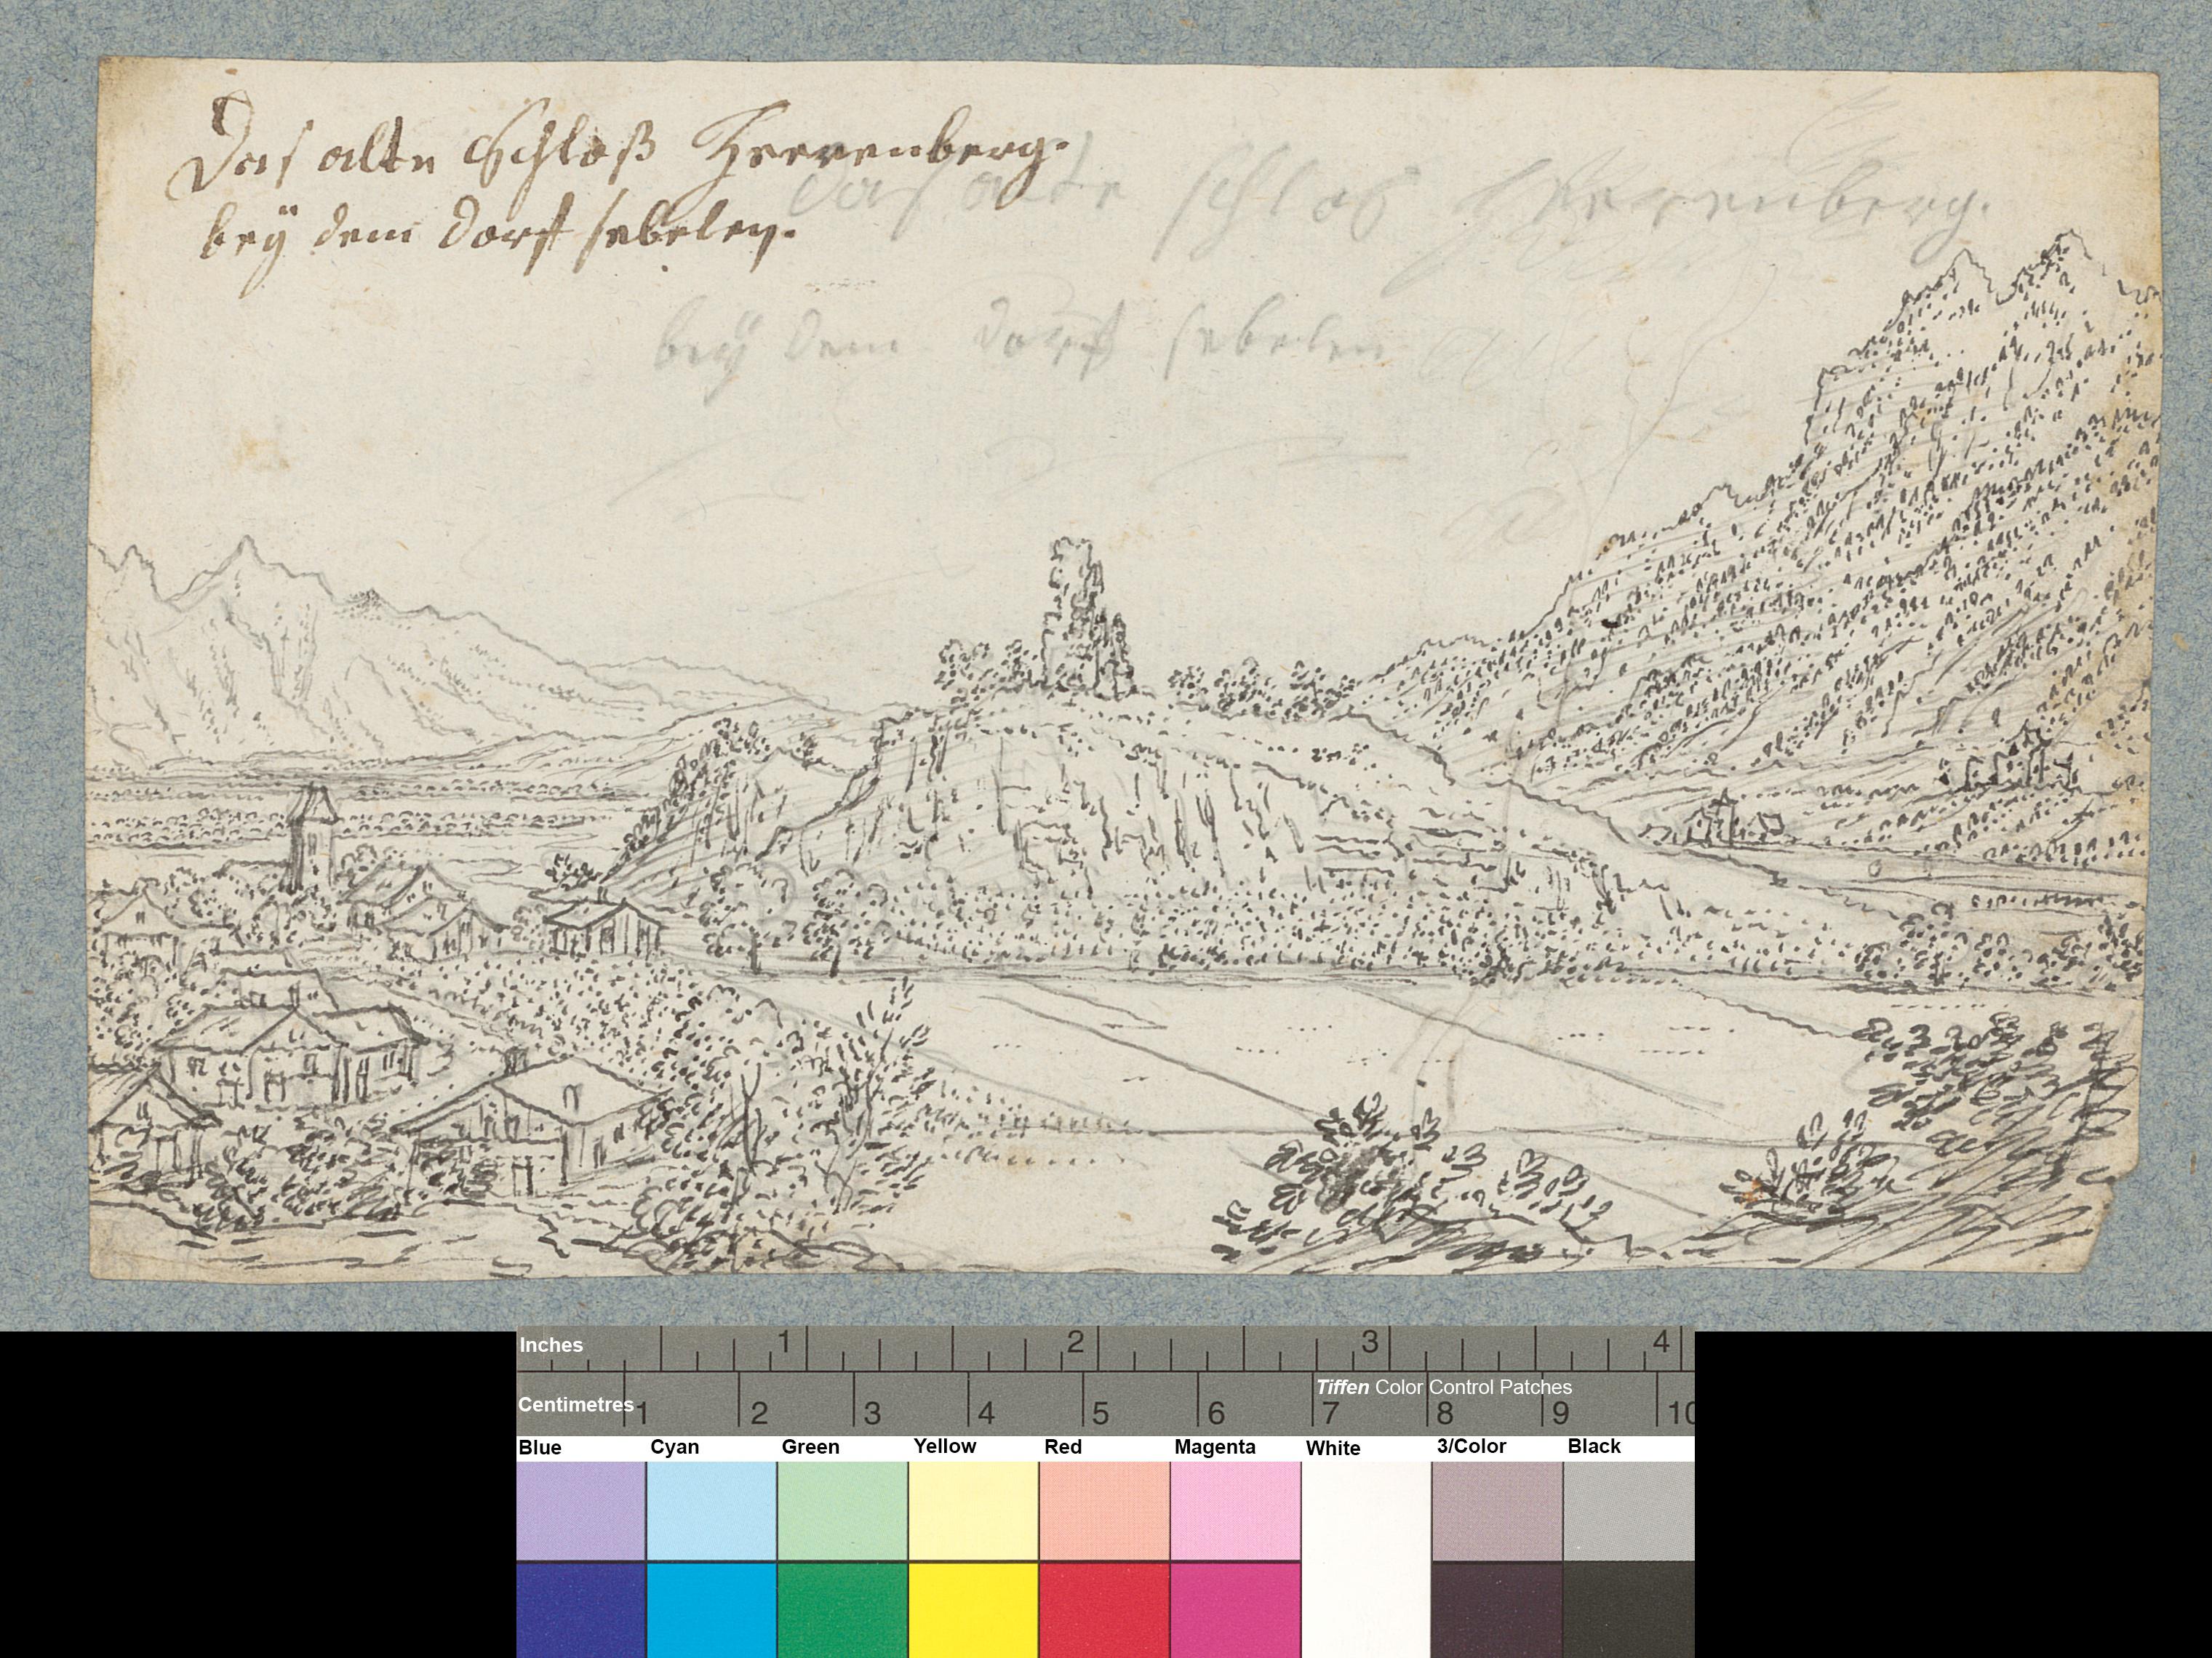 Das alte Schloß Herrenberg.
bey dem dorf sebelen.
das alte schlos Herrenberg.
beÿ dem dorf sebelen
Inches 1 2 3 4
Tiffen Color Control Patches
Centimetres 1 2 3 4 5 6 7 8 9 10
Blue Cyan Green Yellow Red Magenta White 3/Color Black